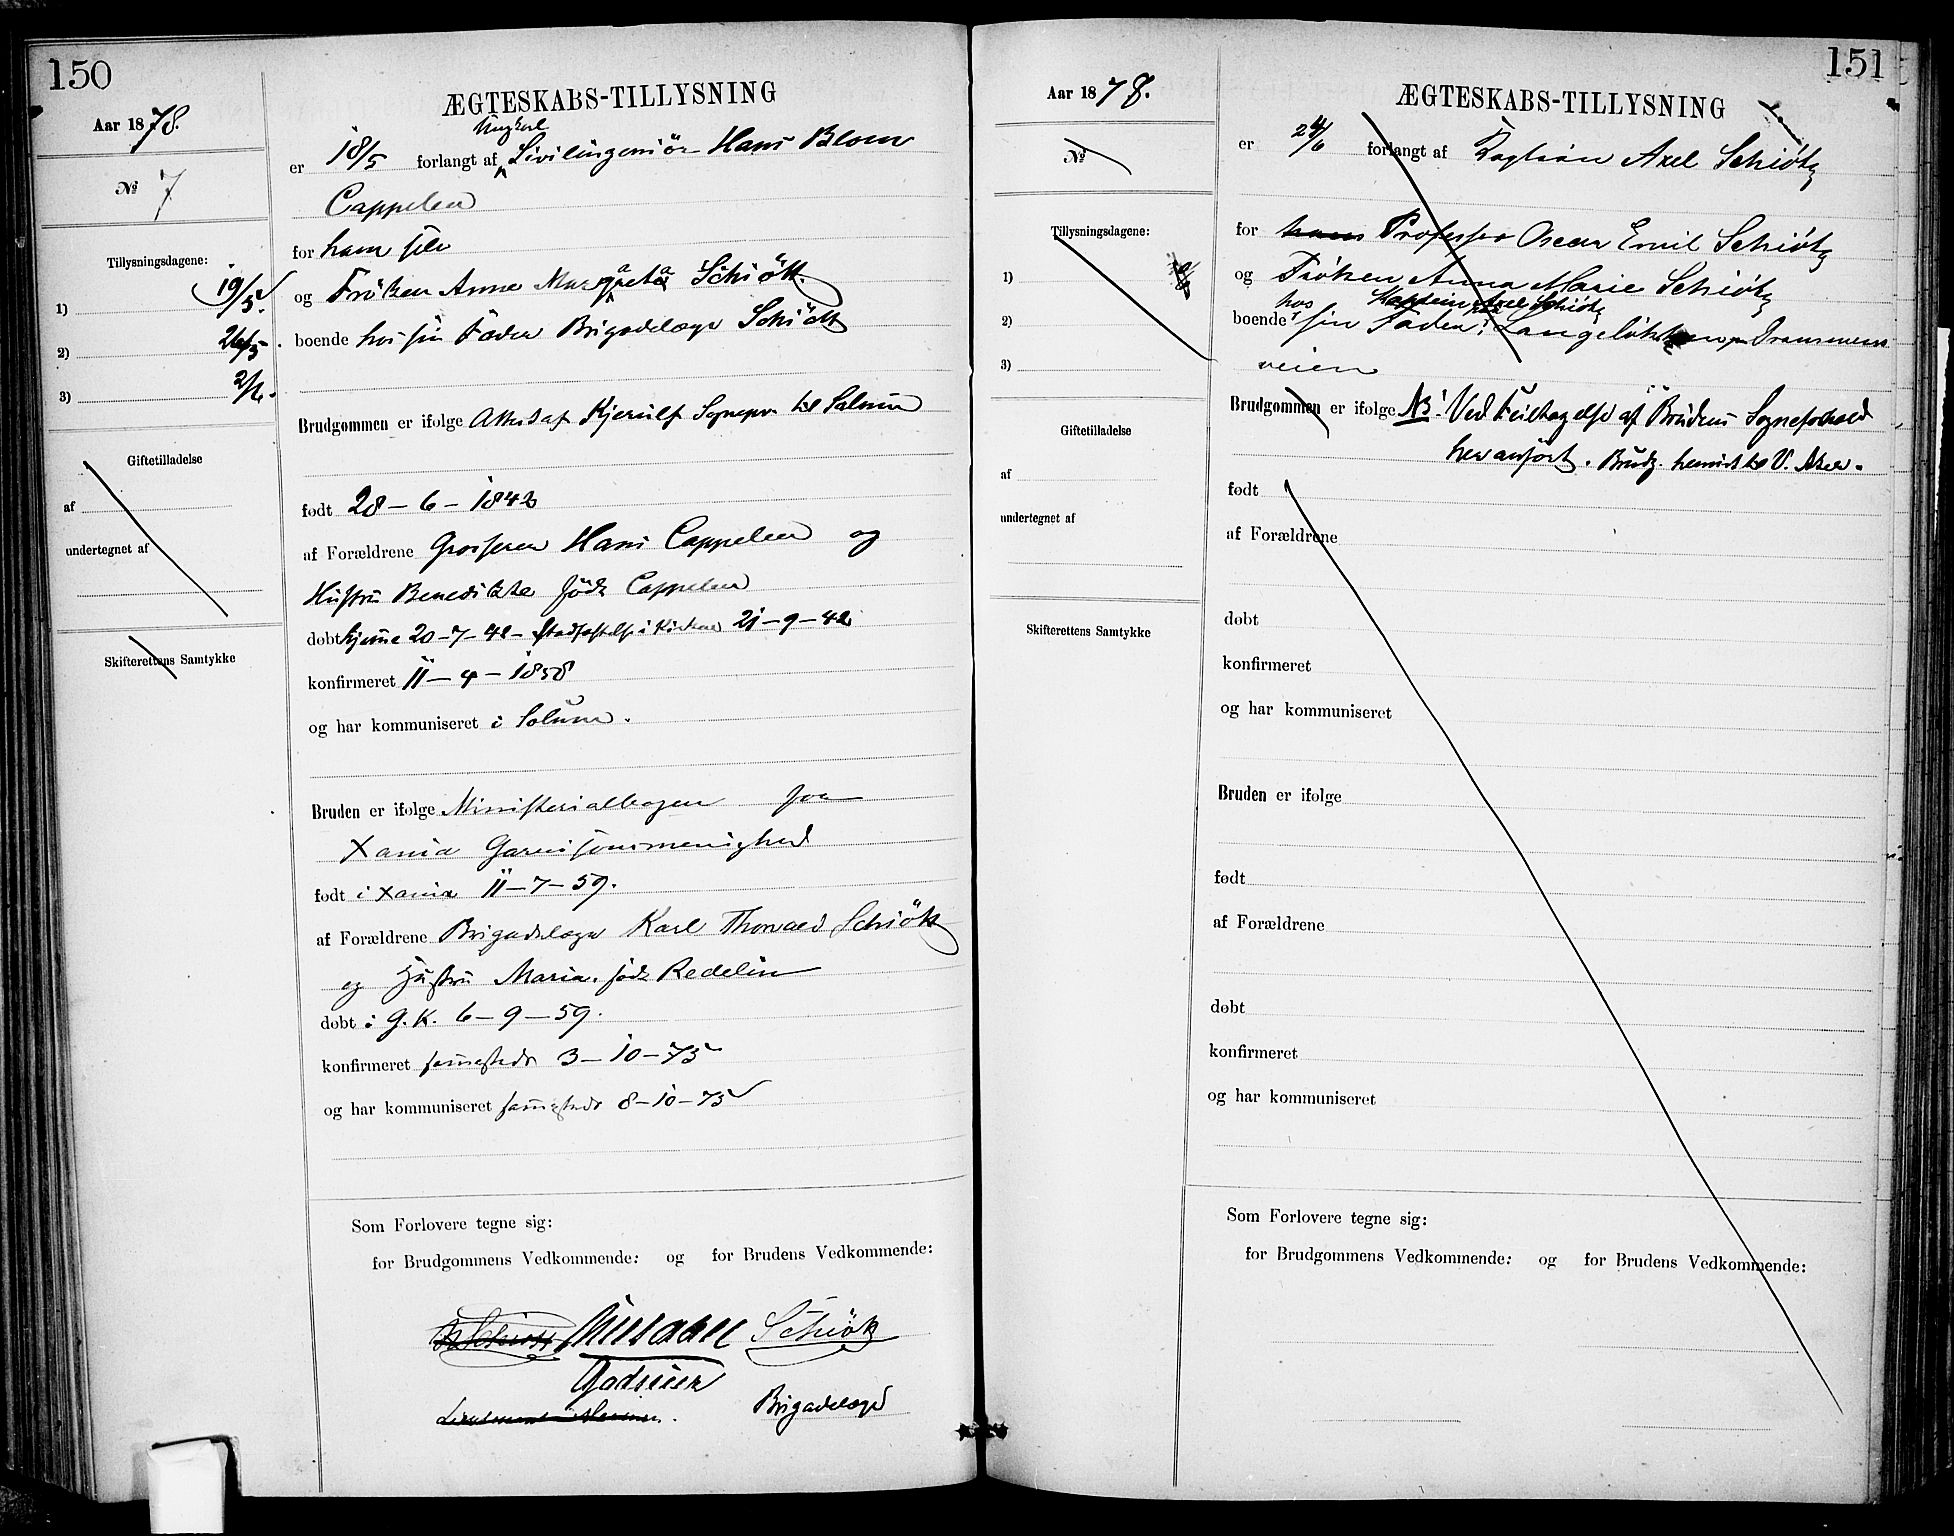 150
Aar 1878.
№ 7
Tillysningsdagene:
1) 19/5.
2) 26/5.
3) 2/6.
Giftetilladelse
af
undertegnet af
Skifterettens Samtykke
ÆGTESKABS-TILLYSNING
Ungkarl
er 18/5 forlangt af Civilingeniör Hans Blom
Cappelen
for ham selv
og Fröken Anne Margareta Schiötz
boende hos sin Fader Brigadelæge Schiötz
Brudgommen er ifølge Attest af Kjerulf Sognepr. til Solum
født 28-6-1842
af Forældrene Grosserer Hans Cappelen og
Hustru Benedikte født Cappelen
døbt hjemme 20-7-42 - Stadfæstelse i Kirken 21-9-42
konfirmeret 11-4-1858
og har kommuniseret i Solum.
Bruden er ifølge Ministerialbogen for
Xania Garnisonsmenighed
født i Xania 11-7-59.
af Forældrene Brigadelæge Karl Thorvald Schiötz
og Hustru Maria, født Redelin
døbt i G.K. 6-9-59.
konfirmeret sammesteds 3-10-75
og har kommuniseret sammesteds 8-10-75
Som Forlovere tegne sig:
for Brudgommens Vedkommende: og for Brudens Vedkommende:
Schiötz
Brigadelæge
151
Aar 1878.
№
Tillysningsdagene:
1)
2)
3)
Giftetilladelse
af
undertegnet af
Skifterettens Samtykke
ÆGTESKABS-TILLYSNING
er 24/6 forlangt af Kaptein Axel Schiøtz
for hans Professor Oscar Emil Schiøtz
og Frøken Anna Marie Schiøtz
hos Kaptein Axel Schiøtz
boende sin Fader, Langeløkken Drammens
veien
Brudgommen er ifølge NB! Ved Feiltagelse af Brudens Sogneforhold
her anført. Brudg. henvist til V. Aker.
født
af Forældrene
døbt
konfirmeret
og har kommuniseret
Bruden er ifølge
født
af Forældrene
døbt
konfirmeret
og har kommuniseret
Som Forlovere tegne sig:
for Brudgommens Vedkommende: og for Brudens Vedkommende: